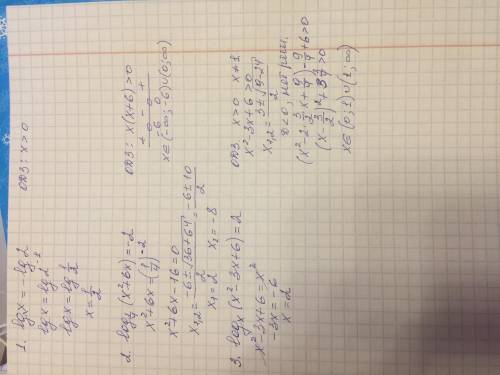 1. lg x = -lg 2 ОДЗ: x > 0
lg x = lg 2⁻¹
lg x = lg 1/2
x = 1/2
2. log_{1/4} (x² + 6x) = -2 ОДЗ: x(x+6) > 0
x² + 6x = (1/4)⁻²
+ - +
-6 0
x ∈ (-∞; 6) ∪ (0; ∞)
x² + 6x - 16 = 0
x₁,₂ = (-6 ± √(36+64))/2 = (-6 ± 10)/2
x₁ = 2 x₂ = -8
3. log_x (x² - 3x + 6) = 2 ОДЗ x > 0 x ≠ 1
x² - 3x + 6 = x² x² - 3x + 6 > 0
-3x = -6 x₁,₂ = (3 ± √(9-24))/2
x = 2 D < 0, нет реш.
(x² - 2·3/2 x + 9/4) - 9/4 + 6 > 0
(x - 3/2)² + 3 3/4 > 0
x ∈ (0; 1) ∪ (1; ∞)